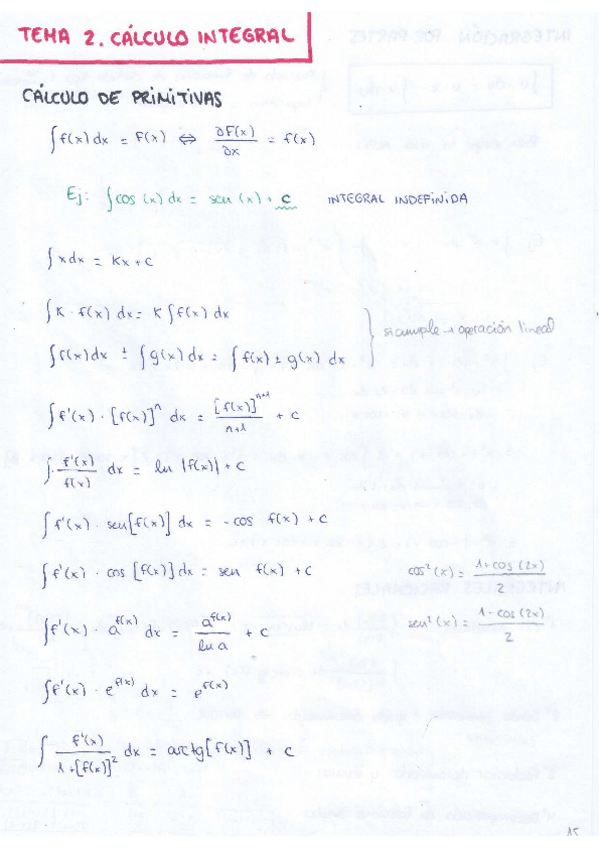 TEMA 2. CÁLCULO INTEGRAL
CÁLCULO DE PRIMITIVAS
∫f(x)dx = F(x) ⇔ ∂F(x)/∂x = f(x)
Ej: ∫cos(x)dx = sen(x) + c INTEGRAL INDEFINIDA
∫xdx = Kx + c
∫K · f(x) dx = K∫f(x) dx
∫f(x)dx ± ∫g(x) dx = ∫f(x) ± g(x) dx
si cumple → operación lineal
∫f'(x) · [f(x)]ⁿ dx = [f(x)]ⁿ⁺¹/(n+1) + c
∫f'(x)/f(x) dx = ln |f(x)| + c
∫f'(x) · sen[f(x)] dx = -cos f(x) + c
∫f'(x) · cos [f(x)]dx = sen f(x) + c
cos²(x) = (1+cos(2x))/2
∫f'(x) · a^f(x) dx = a^f(x)/ln a + c
sen²(x) = (1-cos(2x))/2
∫f'(x) · e^f(x) dx = e^f(x)
∫f'(x)/(1+[f(x)]²) dx = arctg[f(x)] + c
15